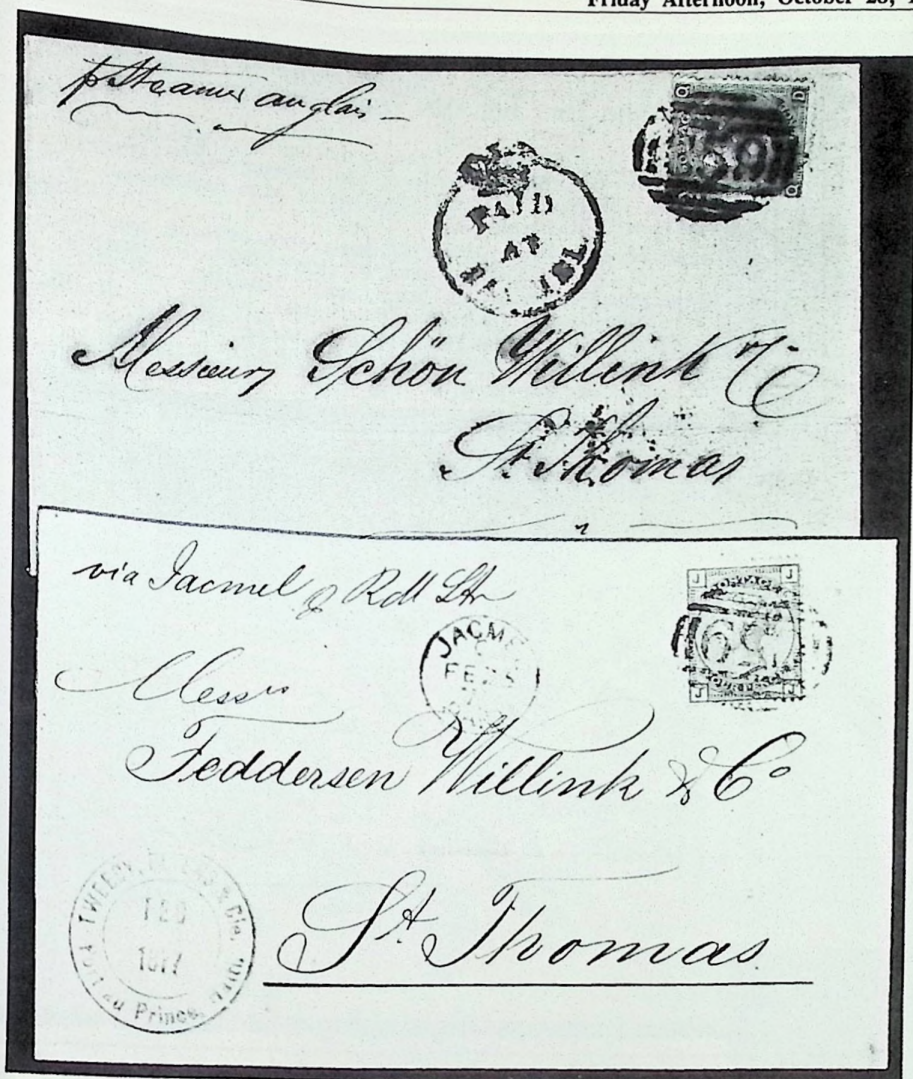 Friday Afternoon, October 28,
p Steamer anglais
PAID
AT
Messieurs Schön Willink & C
St. Thomas
via Jacmel & RM Str
JACME
FE
Messrs
Feddersen Willink & Co
TWEEDY, & Cie.
FEB
1877
Port au Prince
St. Thomas
J J
J J